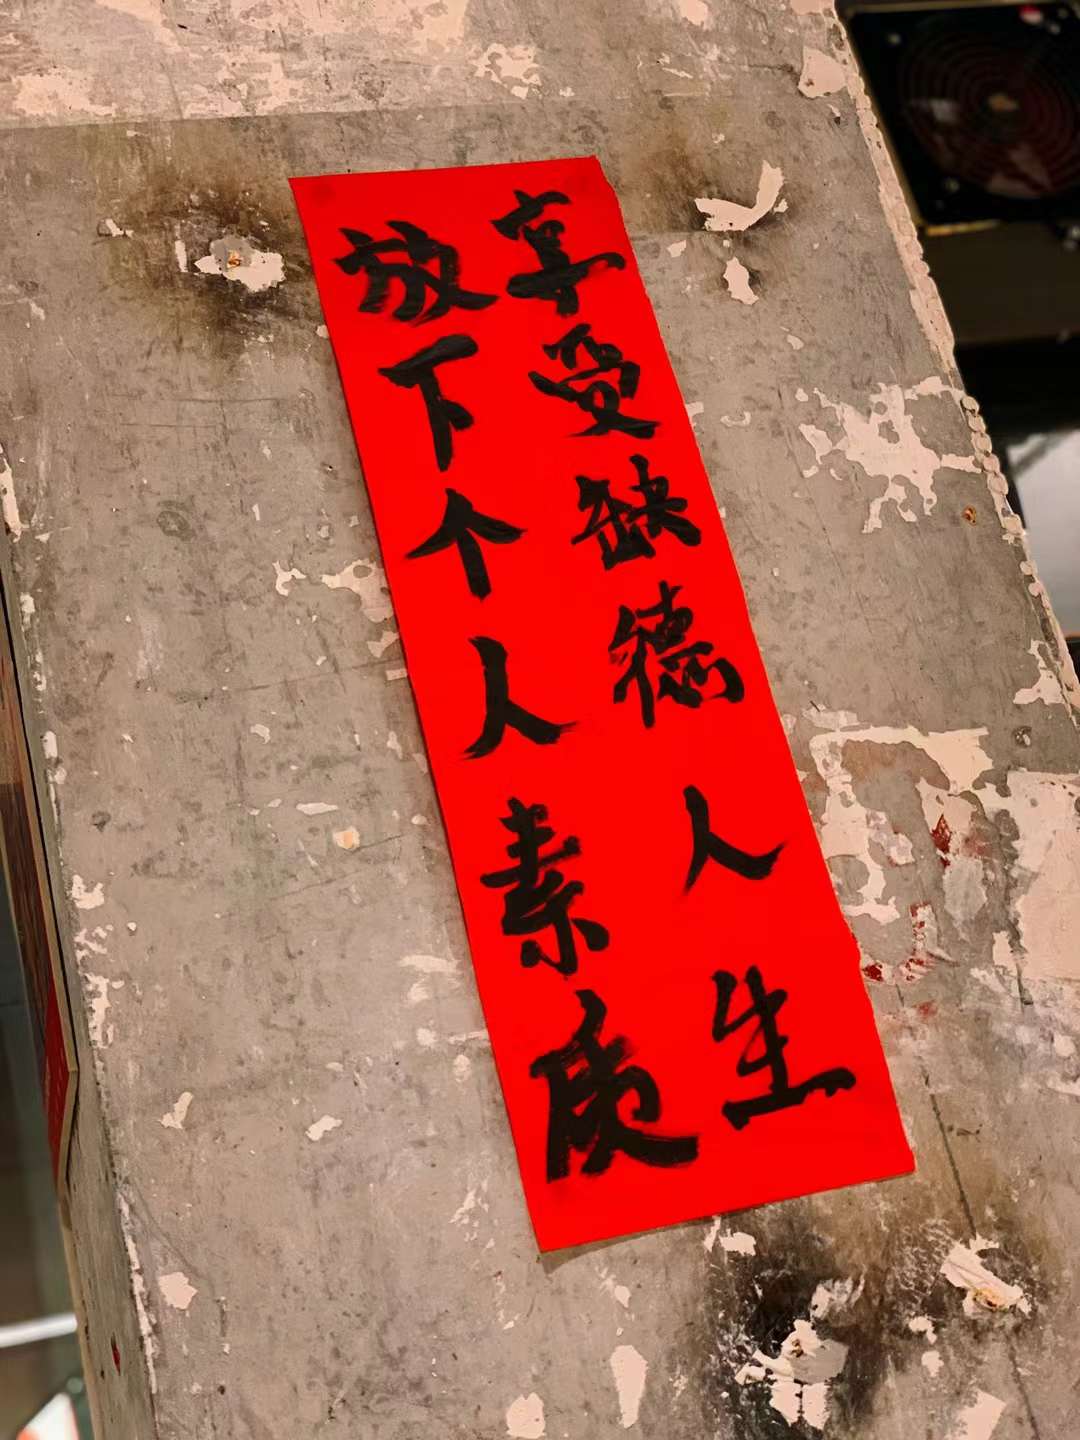 放下个人素质
享受缺德人生